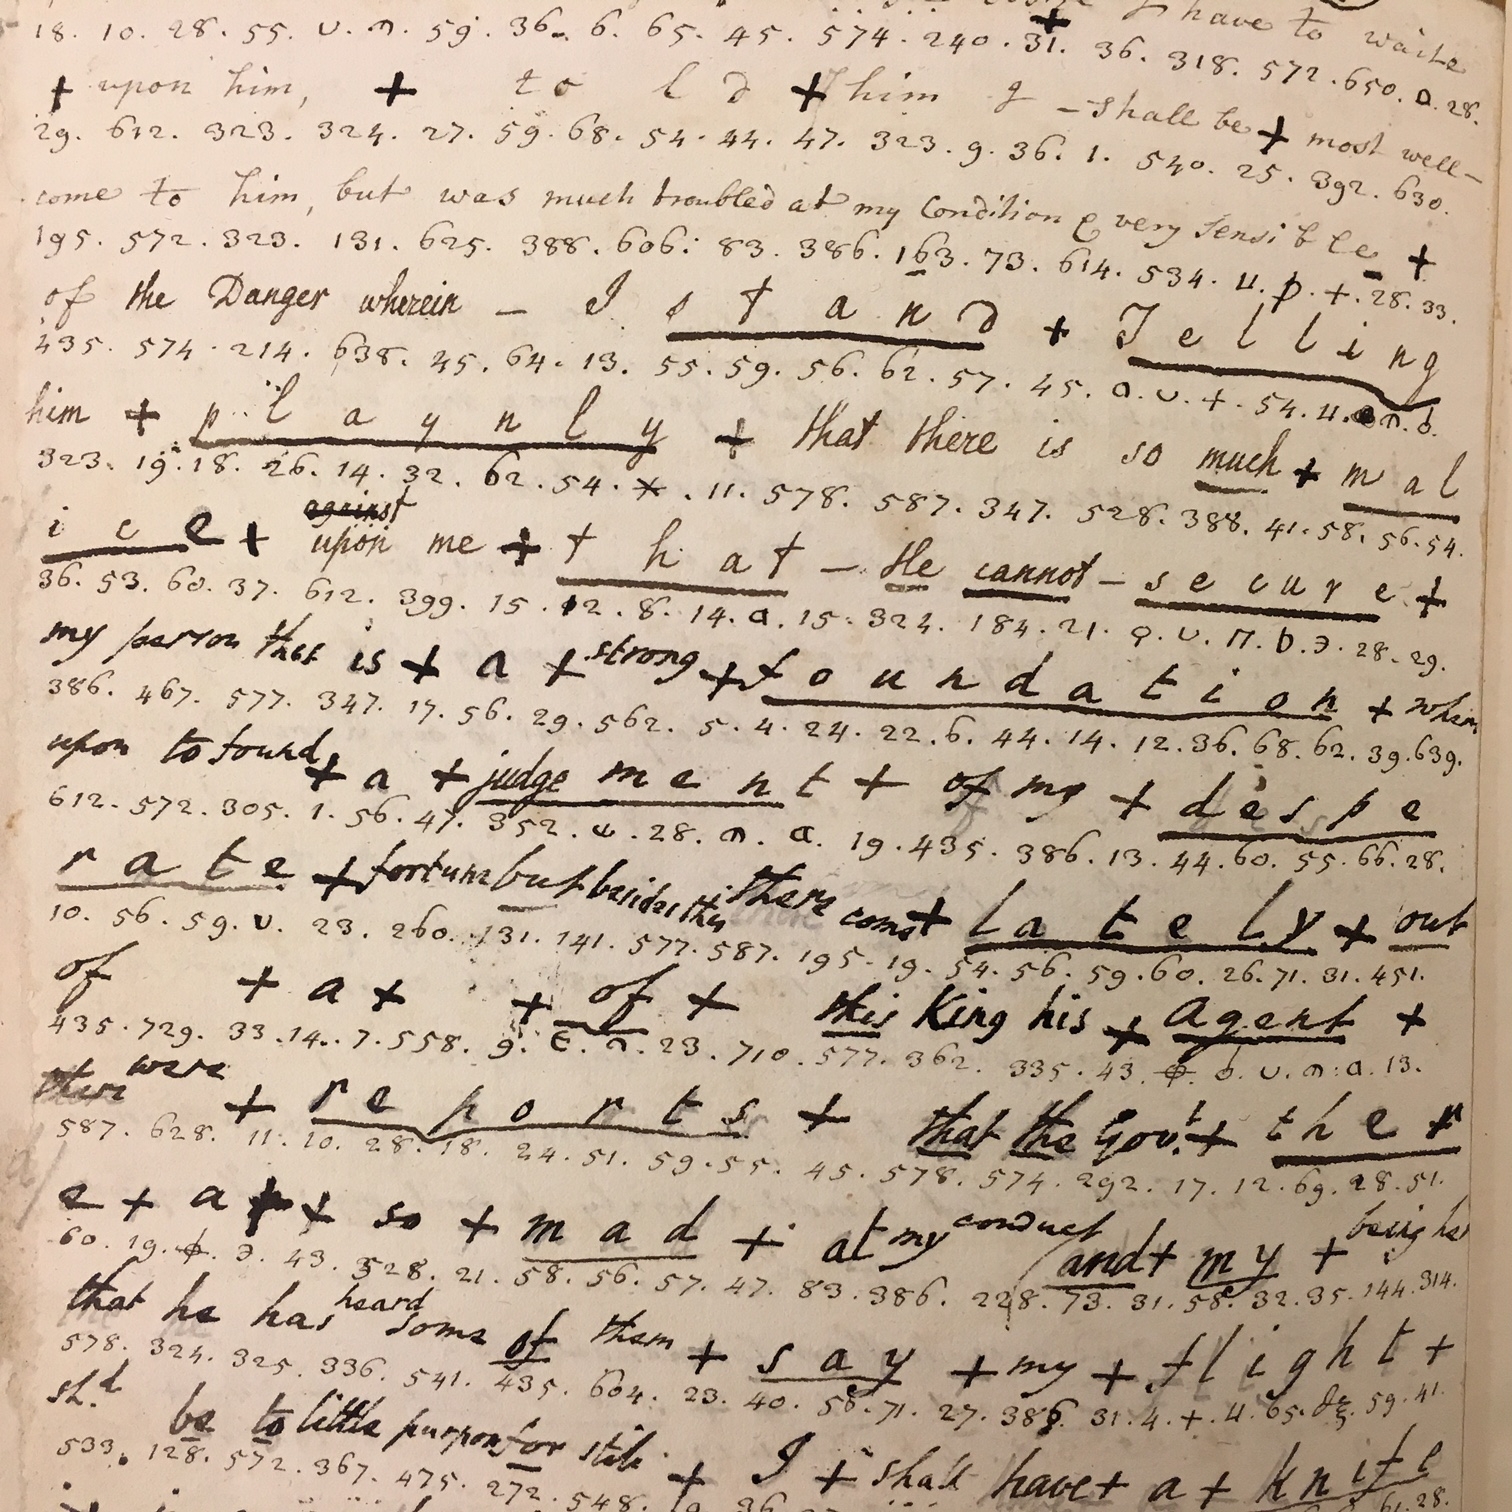 I have to waite
18. 10. 28. 55. u. n. 59. 36. 6. 65. 45. 574. 240. 31. 36. 318. 572. 650. a. 28.
+ upon him, + to l d + him I - shall be + most well-
29. 612. 323. 324. 27. 59. 68. 54. 44. 47. 323. 9. 36. 1. 540. 25. 392. 630.
come to him, but was much troubled at my Condition & very sensible +
195. 572. 323. 131. 625. 388. 606. 83. 386. 163. 73. 614. 534. u. p. +. 28. 33.
of the Danger wherein - I s t a n d + T e l l i n g
435. 574. 214. 638. 45. 64. 13. 55. 59. 56. 62. 57. 45. a. u. +. 54. u. n. d.
him + p l a y n l y + that there is so much + m a l
323. 19. 18. 26. 14. 32. 62. 54. x. 11. 578. 587. 347. 528. 388. 41. 58. 56. 54.
i c e + upon me + t h a t - He cannot - s e c u r e +
36. 53. 60. 37. 612. 399. 15. 12. 8. 14. a. 15. 324. 184. 21. 28. 29.
my person that is + a + strong + f o u n d a t i o n + wher
386. 467. 577. 347. 17. 56. 29. 562. 5. 4. 24. 22. 6. 44. 14. 12. 36. 68. 62. 39. 639.
upon to found + a + judge m e n t + of my + d e s p e
612. 572. 305. 1. 56. 47. 352. 28. n. a. 19. 435. 386. 13. 44. 60. 55. 66. 28.
r a t e + fortune but besides this there come + l a t e l y + out
10. 56. 59. u. 23. 260. 131. 141. 577. 587. 195. 19. 54. 56. 59. 60. 26. 71. 31. 451.
of + a + + of + this King his + Agent +
435. 729. 33. 14. 7. 558. 9. 23. 710. 577. 362. 335. 43. d. u. n. a. 13.
there were + r e p o r t s + that the Govt + t h e r
587. 628. 11. 10. 28. 18. 24. 51. 59. 55. 45. 578. 574. 292. 17. 12. 69. 28. 51.
e + a + so + m a d + at my conduct and + m y + being he
60. 19. 43. 528. 21. 58. 56. 57. 47. 83. 386. 228. 73. 31. 58. 32. 35. 144. 314.
that he has heard some of them + s a y + my + f l i g h t +
578. 324. 325. 336. 541. 435. 604. 23. 40. 56. 71. 27. 386. 31. 4. +. u. 65. 59. 41.
shd be to little purpos for still + I + shall have + a + k n i f e
533. 128. 572. 367. 475. 272. 548. 19. 36.